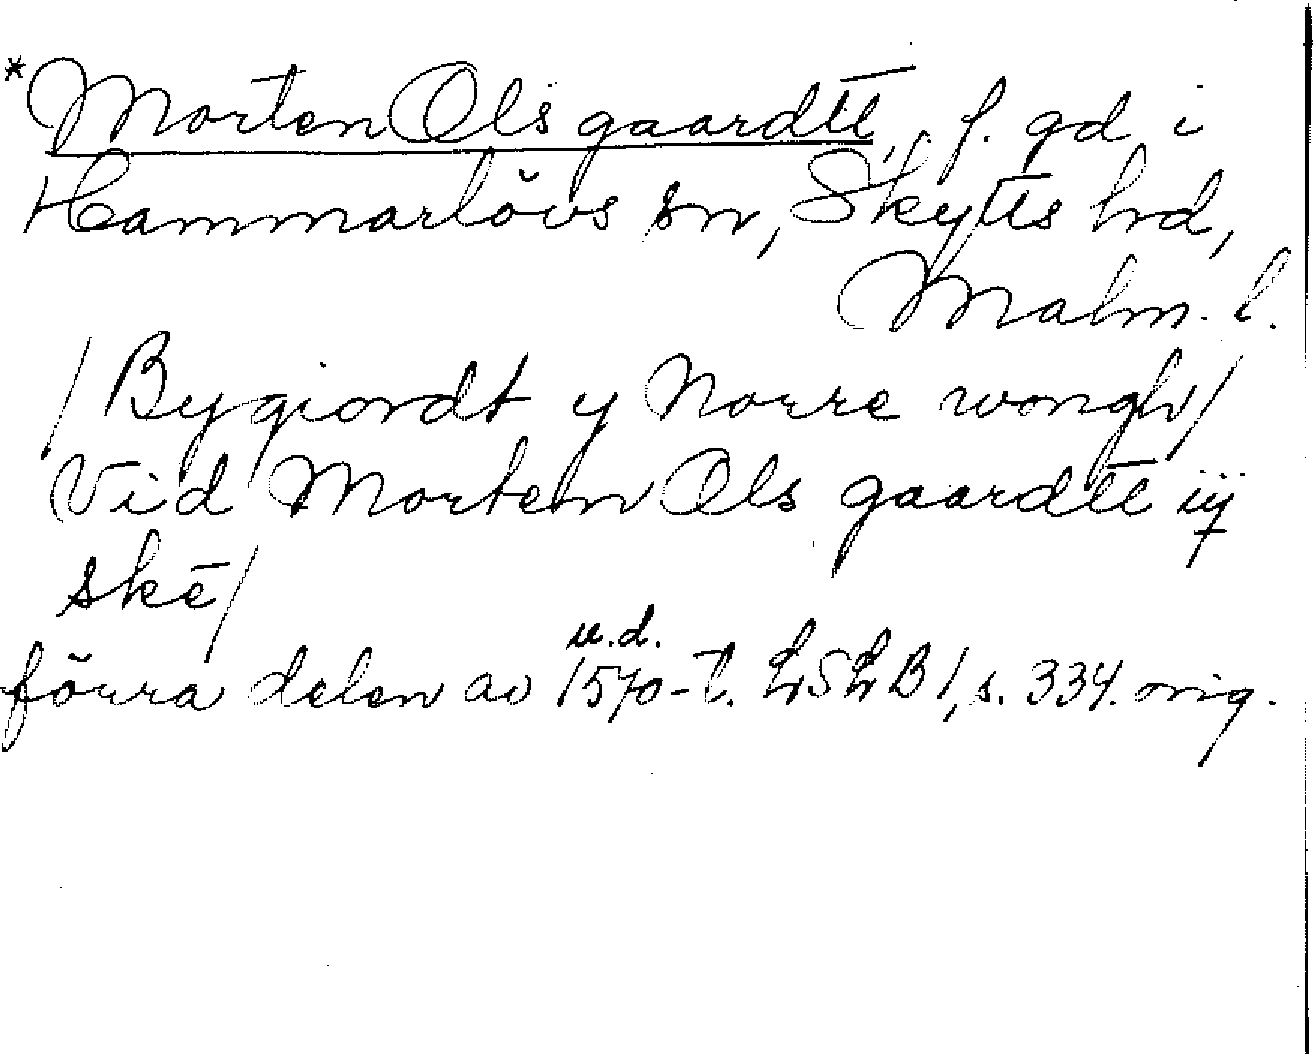 *Morten Ols gaardtt, f. gd i
Hammarlövs sn, Skytts hd,
Malm. l.
/Bygiordt y Norre wongh/
Vid Morten Ols gaardtt iij
skē/
u.d.
förra delen av 1570-t. LSLB1, s. 334. orig.